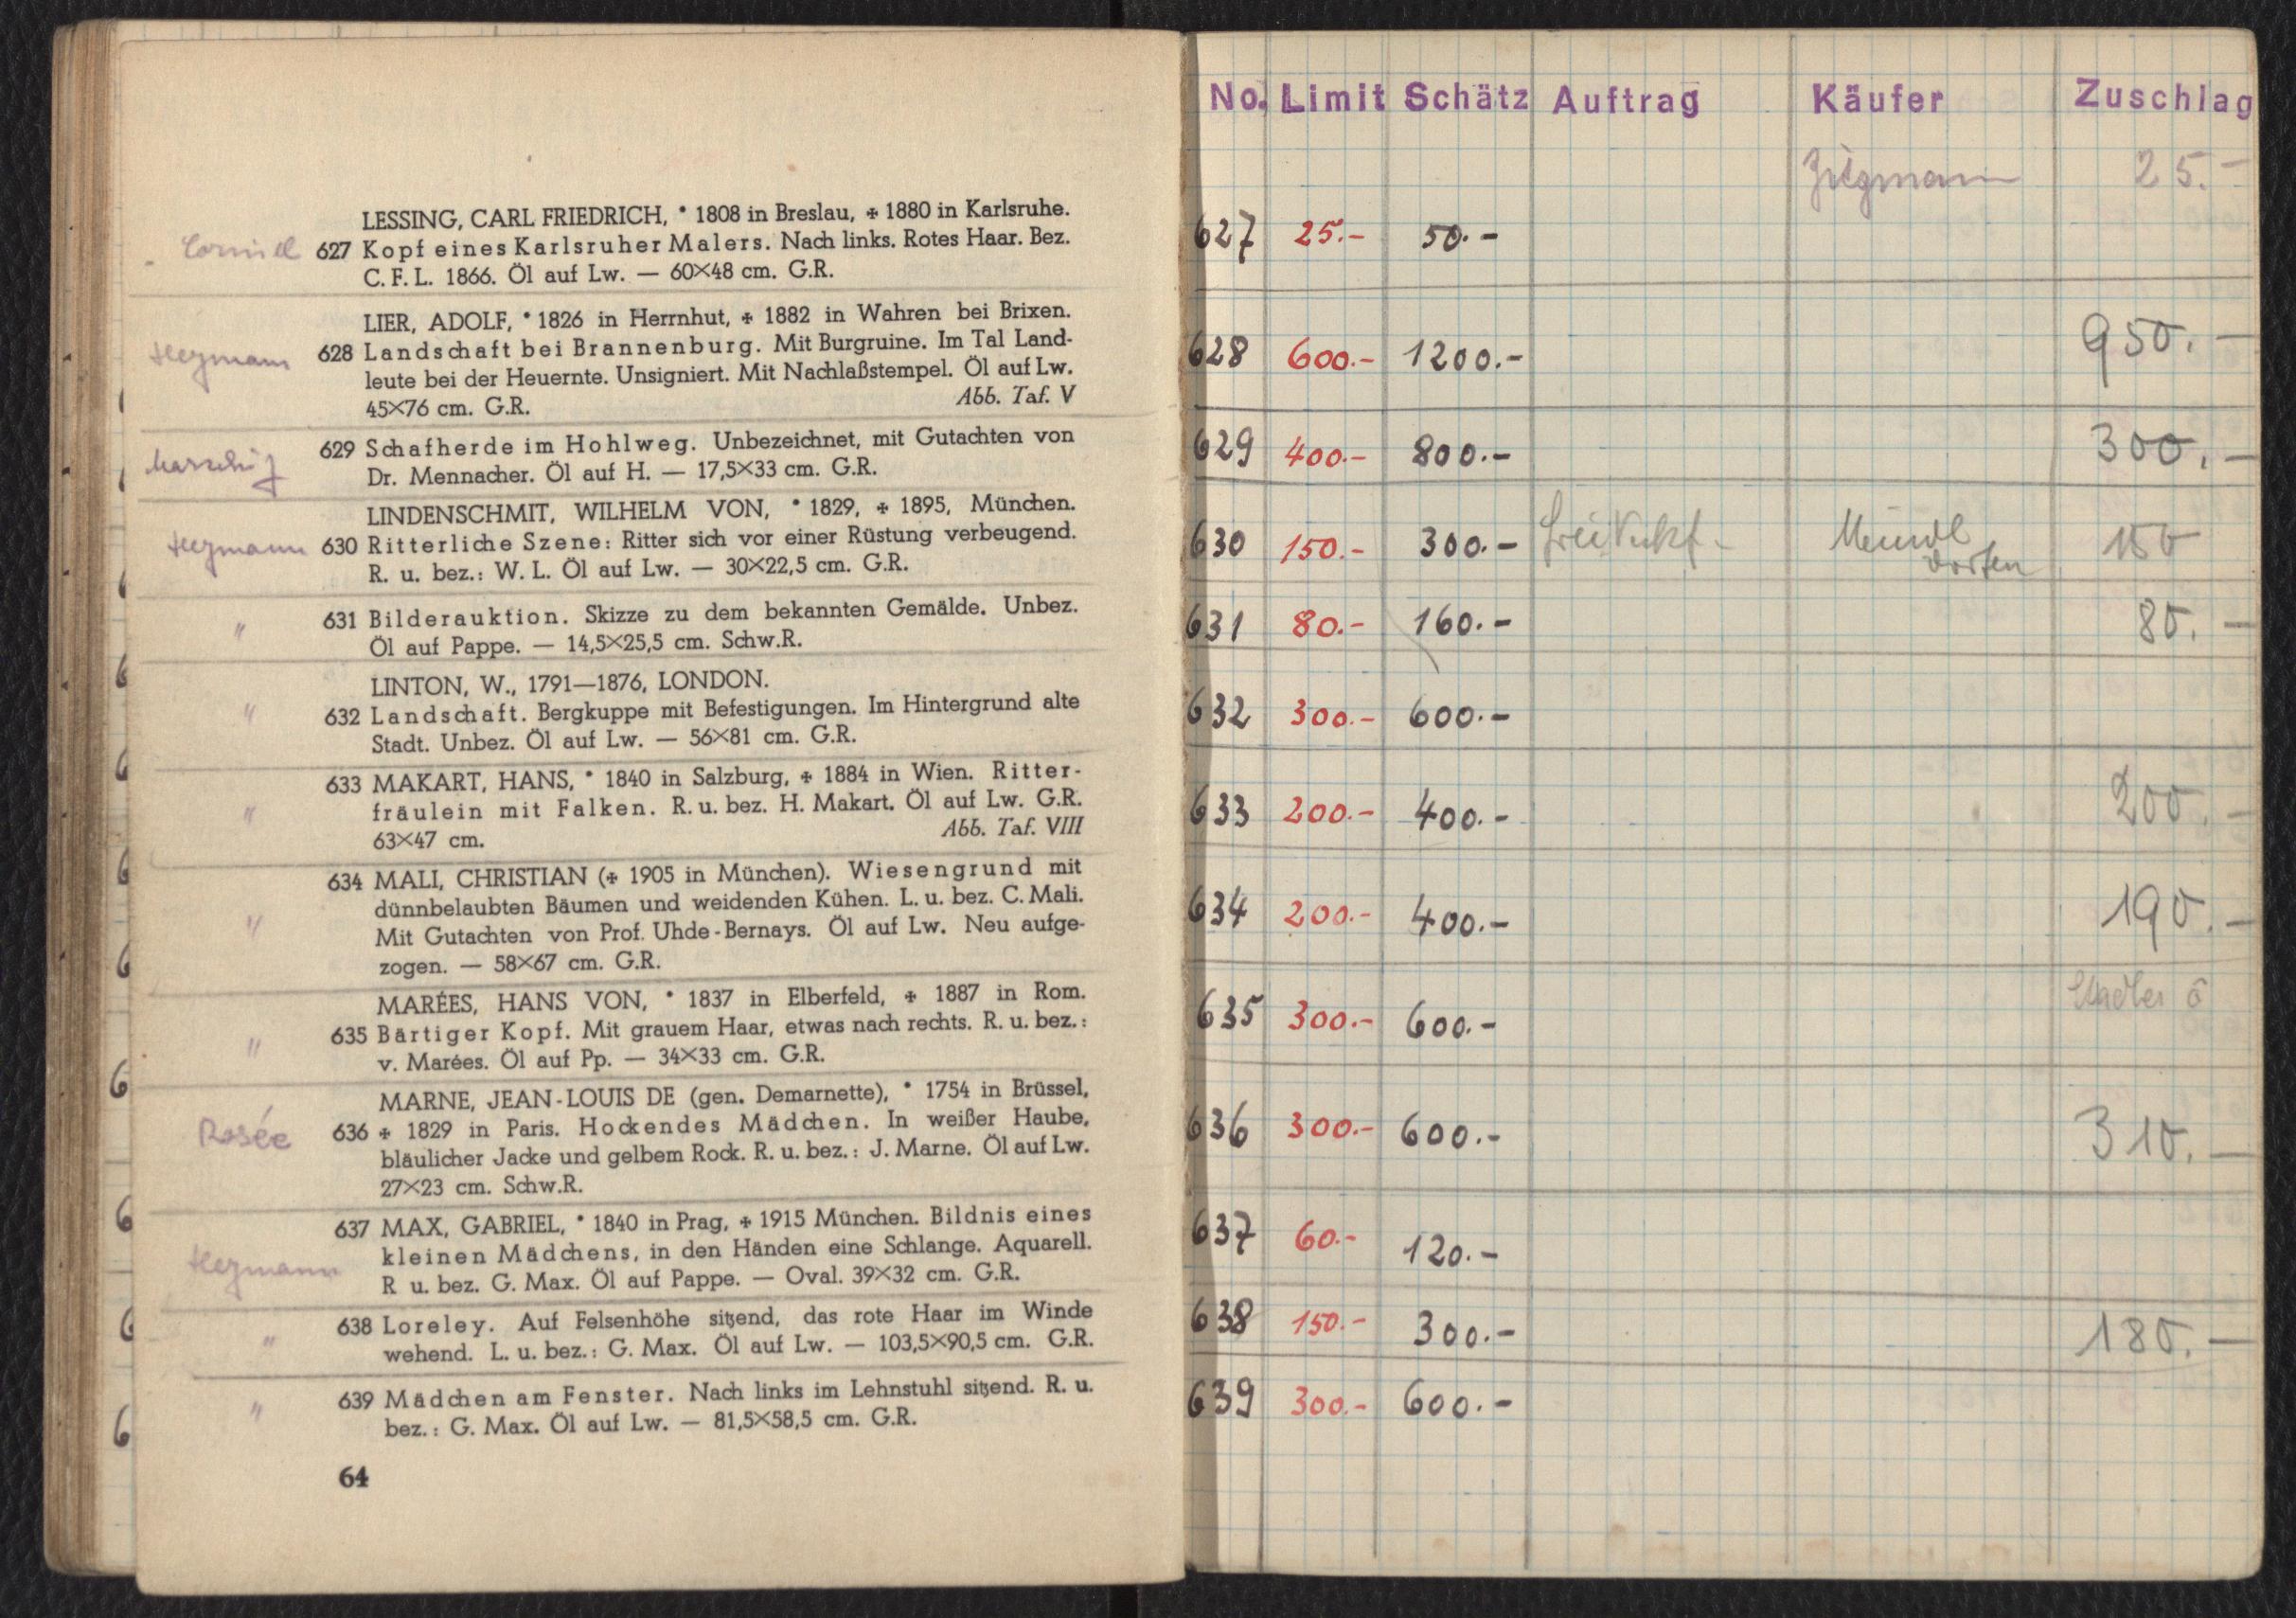 LESSING, CARL FRIEDRICH, * 1808 in Breslau, ✠ 1880 in Karlsruhe.
627 Kopf eines Karlsruher Malers. Nach links. Rotes Haar. Bez.
C. F. L. 1866. Öl auf Lw. — 60×48 cm. G.R.
LIER, ADOLF, * 1826 in Herrnhut, ✠ 1882 in Wahren bei Brixen.
Hegmann 628 Landschaft bei Brannenburg. Mit Burgruine. Im Tal Land-
leute bei der Heuernte. Unsigniert. Mit Nachlaßstempel. Öl auf Lw.
45×76 cm. G.R. Abb. Taf. V
629 Schafherde im Hohlweg. Unbezeichnet, mit Gutachten von
Dr. Mennacher. Öl auf H. — 17,5×33 cm. G.R.
LINDENSCHMIT, WILHELM VON, * 1829, ✠ 1895, München.
Hegmann 630 Ritterliche Szene: Ritter sich vor einer Rüstung verbeugend.
R. u. bez.: W. L. Öl auf Lw. — 30×22,5 cm. G.R.
" 631 Bilderauktion. Skizze zu dem bekannten Gemälde. Unbez.
Öl auf Pappe. — 14,5×25,5 cm. Schw.R.
LINTON, W., 1791—1876, LONDON.
" 632 Landschaft. Bergkuppe mit Befestigungen. Im Hintergrund alte
Stadt. Unbez. Öl auf Lw. — 56×81 cm. G.R.
633 MAKART, HANS, * 1840 in Salzburg, ✠ 1884 in Wien. Ritter-
" fräulein mit Falken. R. u. bez. H. Makart. Öl auf Lw. G.R.
63×47 cm. Abb. Taf. VIII
634 MALI, CHRISTIAN (✠ 1905 in München). Wiesengrund mit
dünnbelaubten Bäumen und weidenden Kühen. L. u. bez. C. Mali.
" Mit Gutachten von Prof. Uhde-Bernays. Öl auf Lw. Neu aufge-
zogen. — 58×67 cm. G.R.
MARÉES, HANS VON, * 1837 in Elberfeld, ✠ 1887 in Rom.
" 635 Bärtiger Kopf. Mit grauem Haar, etwas nach rechts. R. u. bez.:
v. Marées. Öl auf Pp. — 34×33 cm. G.R.
MARNE, JEAN-LOUIS DE (gen. Demarnette), * 1754 in Brüssel,
Rosée 636 ✠ 1829 in Paris. Hockendes Mädchen. In weißer Haube,
bläulicher Jacke und gelbem Rock. R. u. bez.: J. Marne. Öl auf Lw.
27×23 cm. Schw.R.
637 MAX, GABRIEL, * 1840 in Prag, ✠ 1915 München. Bildnis eines
Hegmann kleinen Mädchens, in den Händen eine Schlange. Aquarell.
R u. bez. G. Max. Öl auf Pappe. — Oval. 39×32 cm. G.R.
" 638 Loreley. Auf Felsenhöhe sitzend, das rote Haar im Winde
wehend. L. u. bez.: G. Max. Öl auf Lw. — 103,5×90,5 cm. G.R.
" 639 Mädchen am Fenster. Nach links im Lehnstuhl sitzend. R. u.
bez.: G. Max. Öl auf Lw. — 81,5×58,5 cm. G.R.
64
No. Limit Schätz Auftrag Käufer Zuschlag
25.-
627 25.- 50.-
628 600.- 1200.- 950.-
629 400.- 800.- 300.-
630 150.- 300.- 150
631 80.- 160.- 80.-
632 300.- 600.-
633 200.- 400.- 200.-
634 200.- 400.- 190.-
635 300.- 600.-
636 300.- 600.- 310.-
637 60.- 120.-
638 150.- 300.- 180.-
639 300.- 600.-